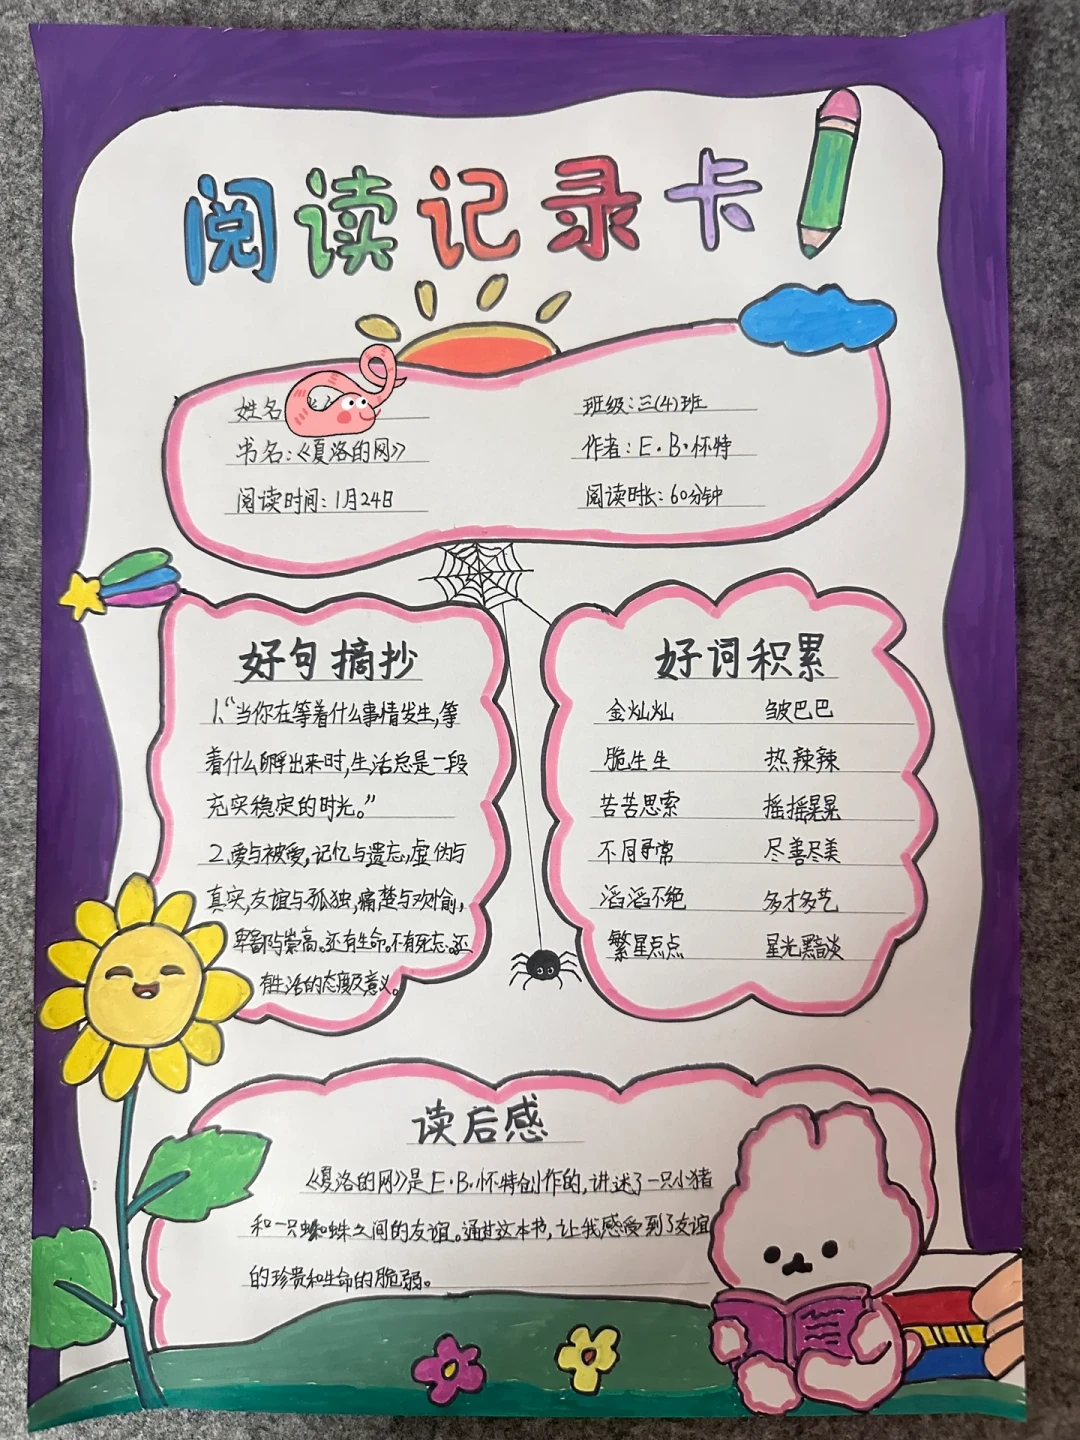 阅读记录卡
姓名
班级:三(4)班
书名:《夏洛的网》
作者:E·B·怀特
阅读时间:1月24日
阅读时长:60分钟
好句摘抄
1、“当你在等着什么事情发生,等
着什么孵出来时,生活总是一段
充实稳定的时光。”
2、爱与被爱,记忆与遗忘,虚伪与
真实,友谊与孤独,痛楚与欢愉,
卑鄙与崇高。还有生命。不有死亡。还
有生活的态度及意义。
好词积累
金灿灿 皱巴巴
脆生生 热辣辣
苦苦思索 摇摇晃晃
不同寻常 尽善尽美
滔滔不绝 多才多艺
繁星点点 星光黯淡
读后感
《夏洛的网》是E·B·怀特创作的,讲述了一只小猪
和一只蜘蛛之间的友谊。通过这本书,让我感受到了友谊
的珍贵和生命的脆弱。